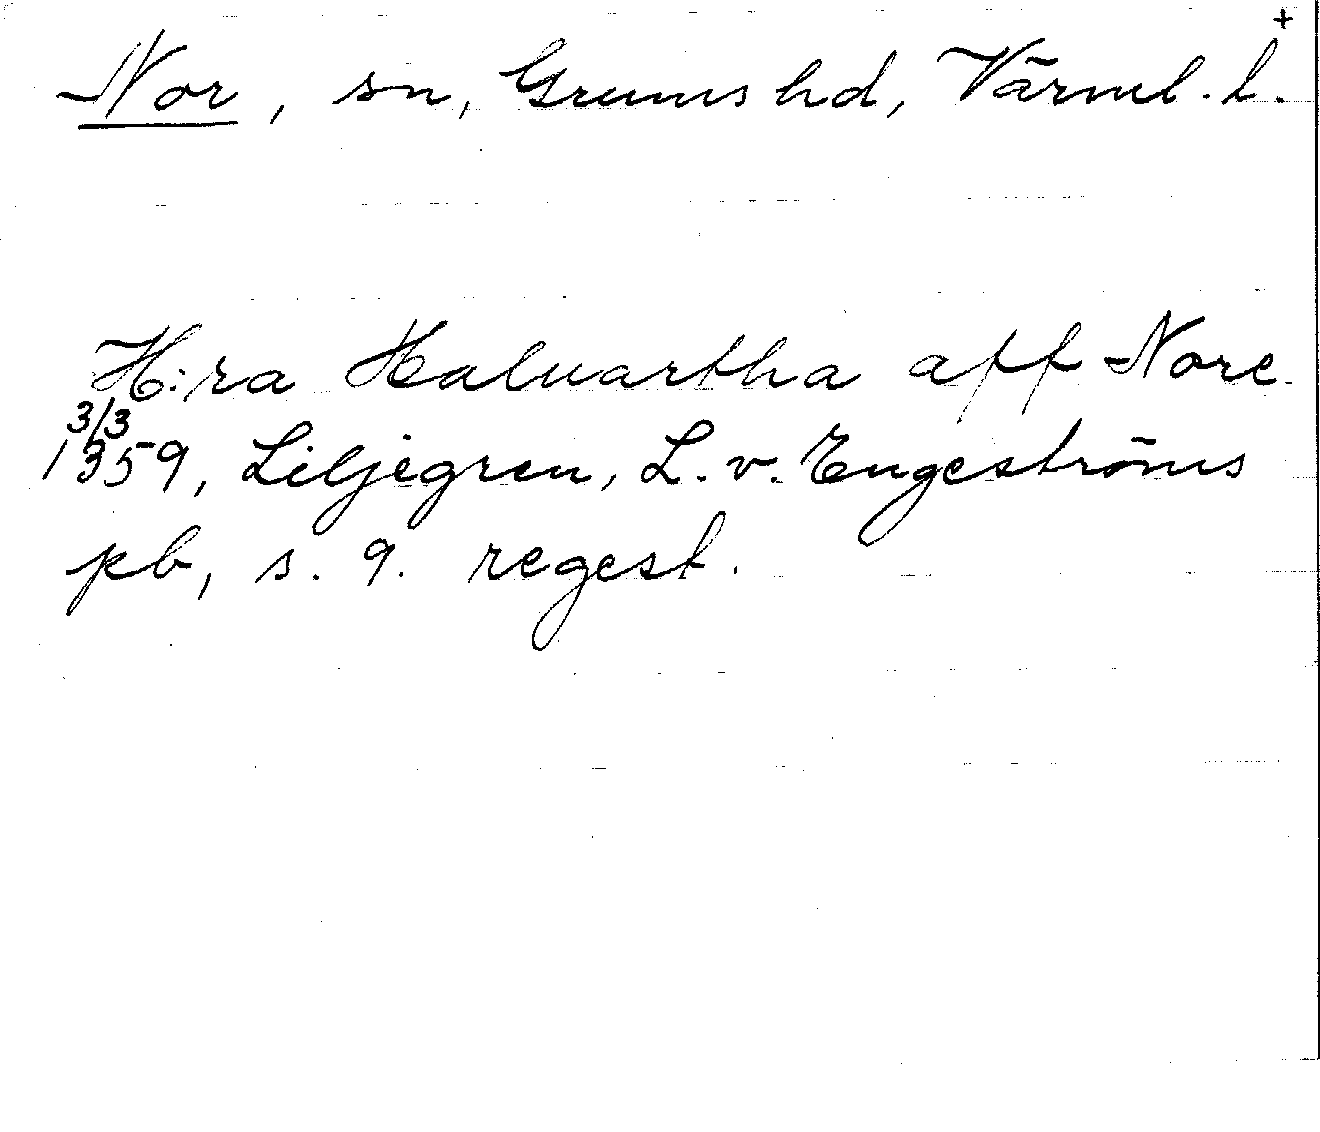 +
Nor, sn, Grums hd, Värml. l.
H:ra Haluartha aff Nore
3/3
1359, Liljegren, L. v. Engeströms
pb, s. 9. regest.